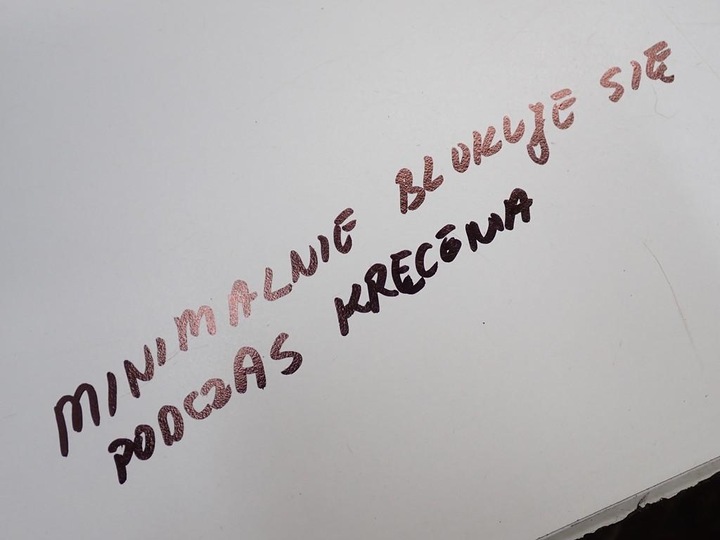 MINIMALNIE BLOKUJE SIĘ
PODCZAS KRĘCENIA